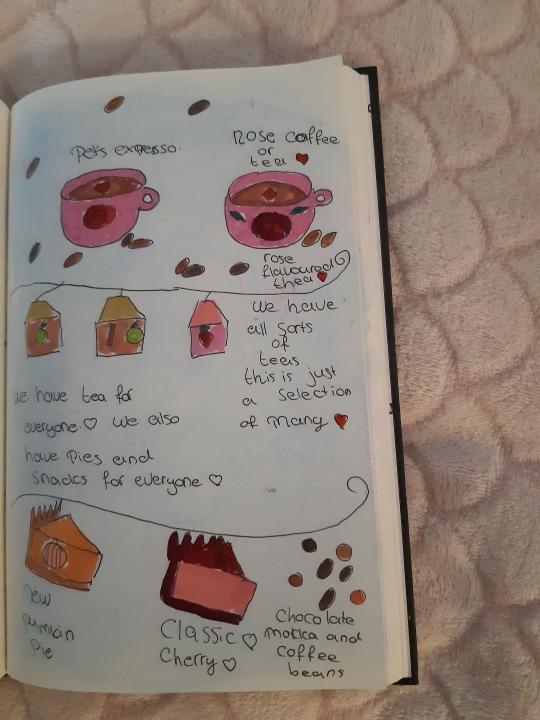 Pets expresso.
Rose coffee
or
tea
rose
flavoured
thea
we have
all sorts
of
teas
this is just
a selection
of many
we have tea for
everyone. ♡ we also
have pies and
snacks for everyone ♡
New
pumkin
Pie
Classic ♡
Cherry ♡
Chocolate
mokka and
coffee
beans